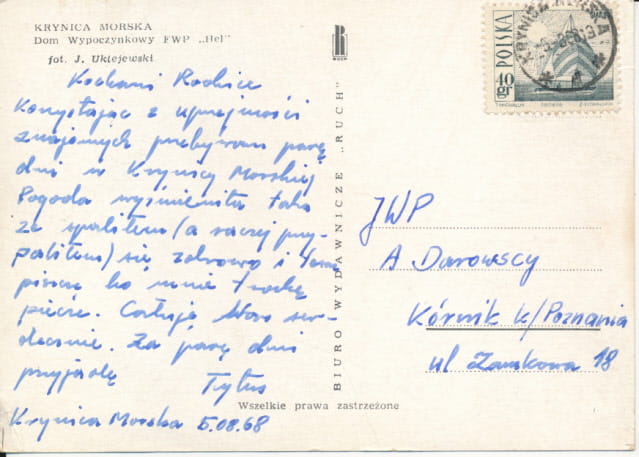 KRYNICA MORSKA
Dom Wypoczynkowy FWP „Hel"
fot. J. Uklejewski
Kochani Rodzice
Korzystając z uprzejmości
znajomych przebywam parę
dni w Krynicy Morskiej
Pogoda wyśmienita taka
że spaliłem (a raczej przy-
paliłem) się zdrowo i teraz
piszę bo mnie trochę
piecze. Całuję Was ser-
decznie. Za parę dni
przyjadę
Tytus
Krynica Morska 5.08.68
Wszelkie prawa zastrzeżone
BIURO WYDAWNICZE „RUCH"
RUCH
POLSKA
40 gr
KRYNICA MORSKA
JWP
A Darowscy
Kórnik k/Poznania
ul Zamkowa 18